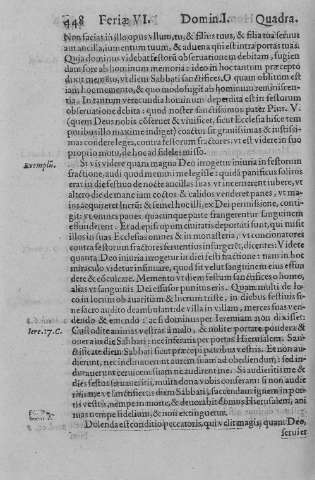 448 Feriæ VI. Domin. I. Quadra.
Non facias in illo opus vllum, tu, & filius tuus, & filia tua, seruus
aut ancilla, iumentum tuum, & aduena qui est intra portas tuas.
Quia dominus videbat festorũ obseruationem debitam, fugien
dam fore ab hominum memoria: ideo in hoc tantum præcepto
dixit memẽto, vt diem Sabbati sanctifices. O quam oblitum est
iam hoc memento, & quo modo fugit ab hominibus, & reueren
tia. In tantum verecundia hominum deperdita est in festorum
obseruatione debita: quod noster sanctissimus pater Pius. V.
(quem Deus nobis cõseruet & viuificet, sicut Ecclesia hisce tem
poribus illo maxime indiget) coactus sit grauissimas & iustissi-
mas condere leges, contra festorum fractores: vt videre in suo
proprio motu, de hoc ad fidele misso.
Exemplũ. Si vis videre quam magnũ Deo irrogetur iniuria in festorum
fractione, audi quod memini me legisse: quidã panificus solitus
erat in die festiuo de nocte ancillas suas
altero die de mane iam coctos & calidos venderet panes,
ex Dei permissione, conti-
git: vt omnes panes quacunque parte frangerentur sanguinem
effunderent. Et ad episcopum ciuitatis deportati sunt, qui misit
illos in suas Ecclesias omnes & in monasteria, vt cuncionatores
contra festorum fractores feruentius insurgerẽt, dicentes: Videte
quanta Deo iniuria irrogetur in diei festi fractione: nam in hoc
miraculo videtur insinuare, quod sit velut sanguinem eius effun
dere & cõculcare. Memento vt diem festum sanctifices o homo,
alias vt sanguinis Dei effusor punitus eris. Quam multi de lo-
co in locum ob auaritiam & lucrum triste, in diebus festiuis si-
ne sacro audito deambulant de villa in villam, merces suas ven-
dendo & emendo: ac si dominus per Ieremiam non dixisset:
Iere. 17. C. Custodite animas vestras à malo, & nolite portare pondera &
onera in die Sabbati: nec inferatis per portas Hierusalem. San-
ctificate diem Sabbati sicut præcepi patribus vestris. Et non au-
dierunt, nec inclinauerunt aurem suam ad obediendum: sed in-
durauerunt ceruicem suam ne audirent me. Si audieritis me &
dies festos seruaueritis, multa dona vobis conferam: si non audie
ritis me, vt sanctificetis diem Sabbati, succendam ignem in por-
tis vestris, nempe in morte, & deuorabit domus Hierusalem, ani
mas nempe fidelium, & non extinguetur.
Dolenda est conditio peccatoris, qui velit magis, quam Deo,
seruiet